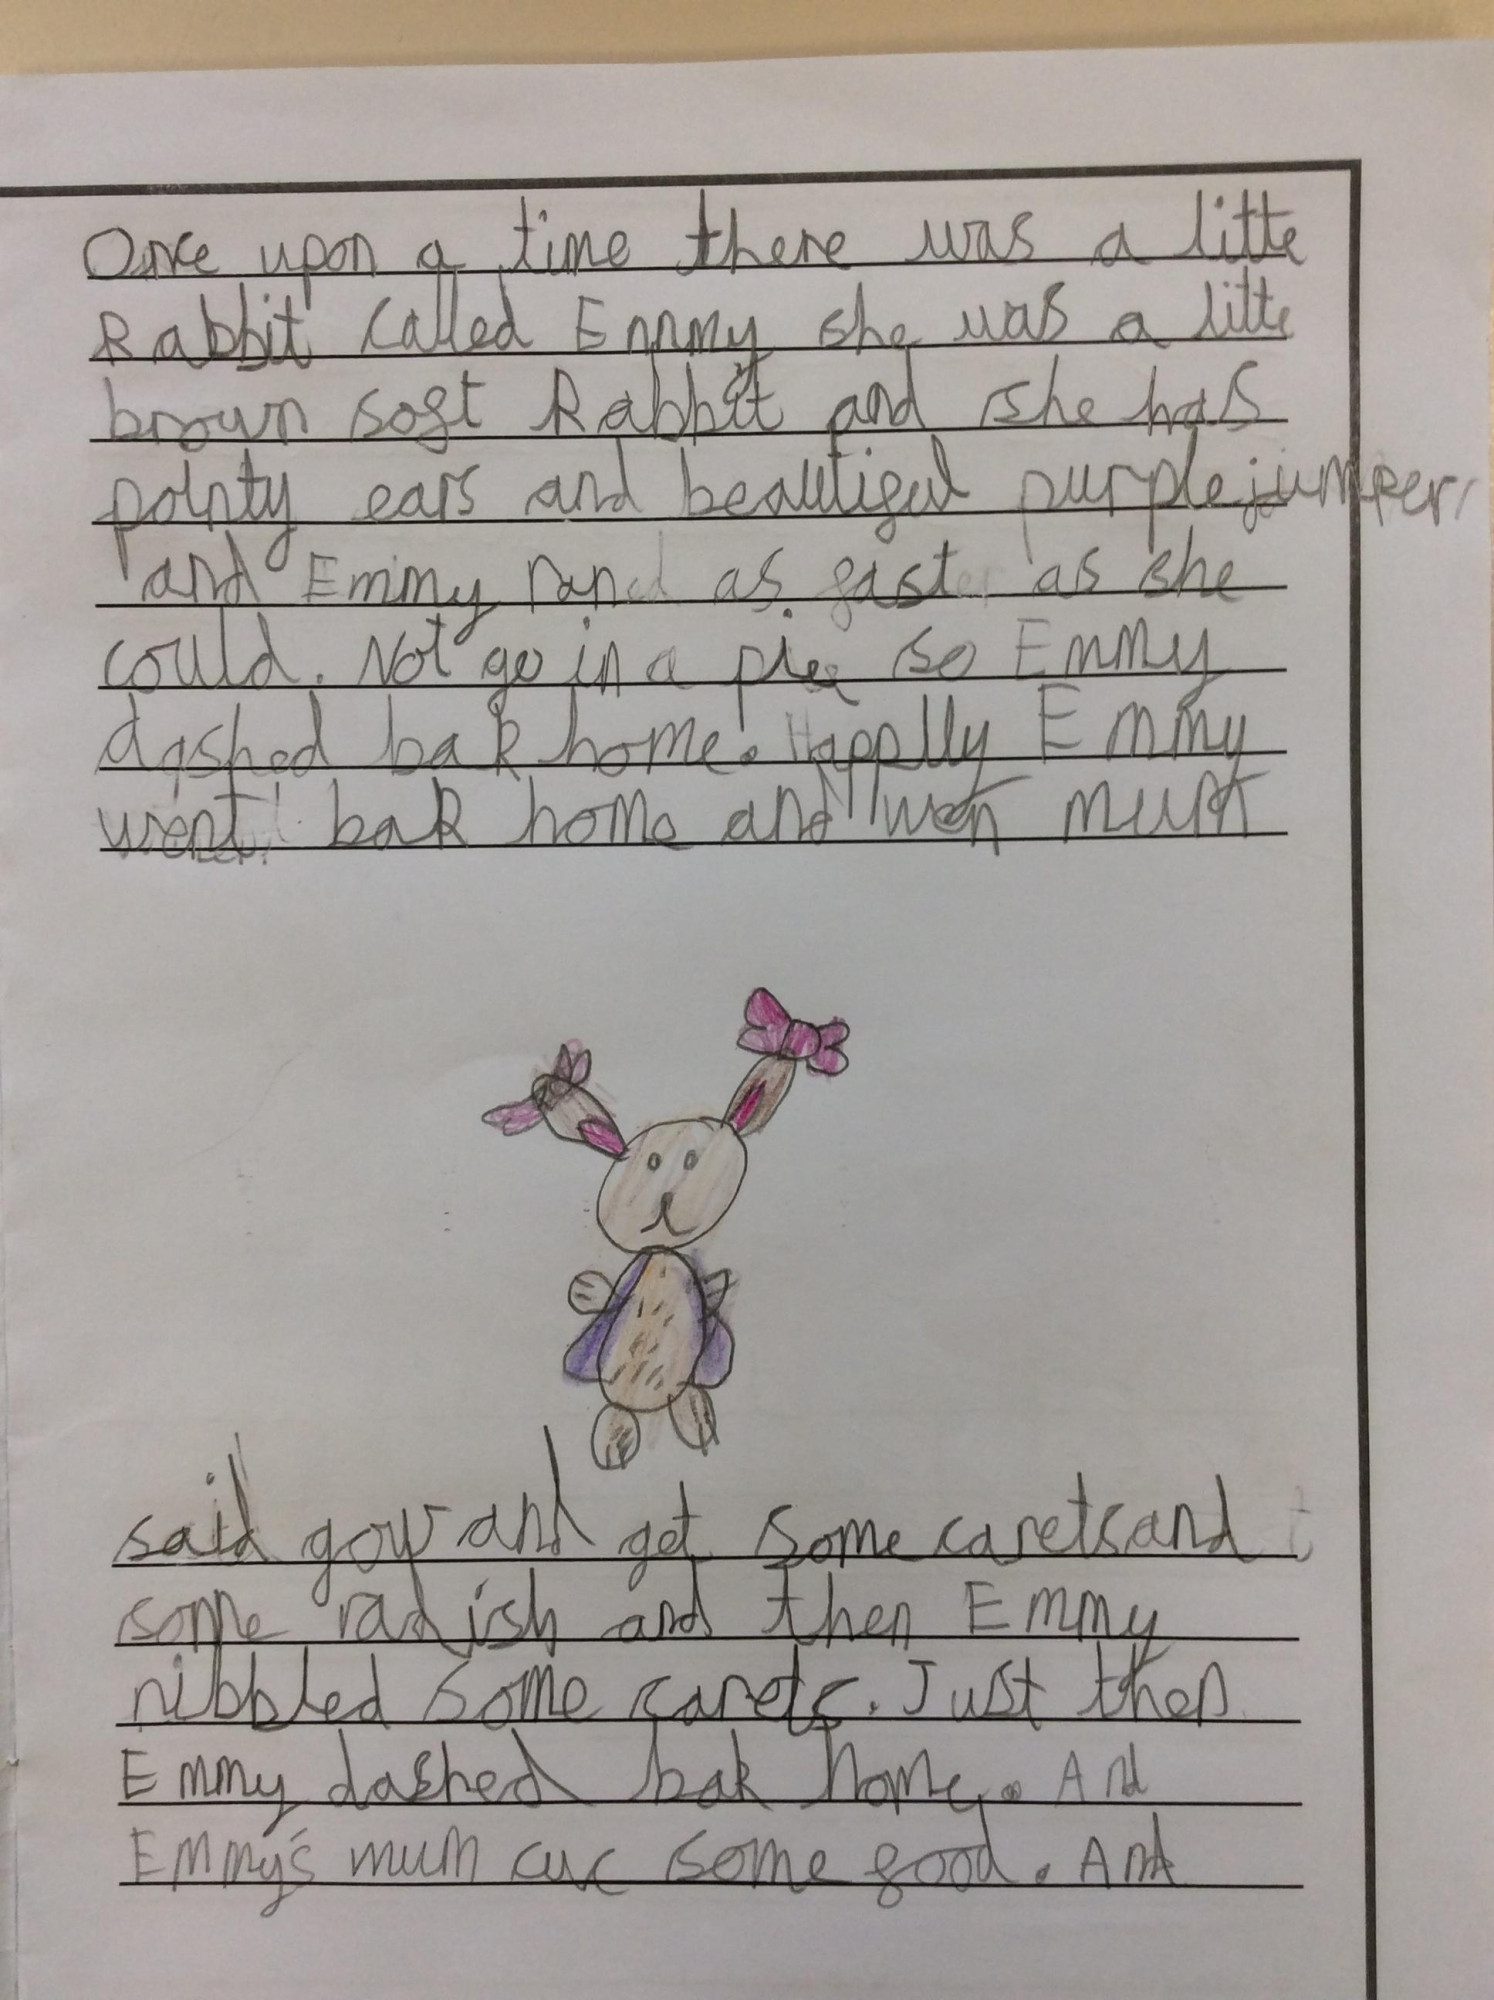 Once upon a time there was a litte
Rabbit called Emmy she was a litte
brown soft Rabbit and she has
pointy ears and beautiful purple jumper,
and Emmy ran as fast as she
could. Not go in a pie so Emmy
dashed bak home. Happlly Emmy
went bak home and wen mum
said gow and get some carets and
some radish and then Emmy
nibbled some carets. Just then
Emmy dashed bak home. And
Emmy's mum cuc some food. And